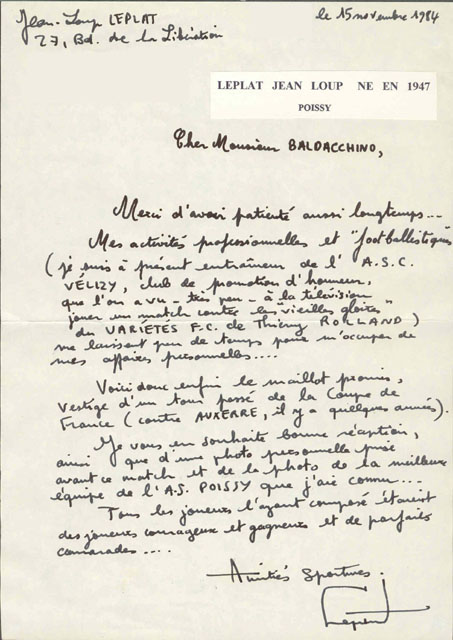 Jean-Loup LEPLAT
le 15 novembre 1984
27, Bd. de la Libération
LEPLAT JEAN LOUP NE EN 1947
POISSY
Cher Monsieur BALDACCHINO,
Merci d'avoir patienté aussi longtemps...
Mes activités professionnelles et "footballistiques
(je suis à présent entraîneur de l'A.S.C.
VELIZY, club de promotion d'honneur,
que l'on a vu - très peu - à la télévision
jouer un match contre les "vieilles gloires"
du VARIÉTÉS F.C. de Thierry ROLLAND)
me laissent peu de temps pour m'occuper de
mes affaires personnelles....
Voici donc enfin le maillot promis,
vestige d'un tour passé de la Coupe de
France (contre AUXERRE, il y a quelques années).
Je vous en souhaite bonne réception,
ainsi que d'une photo personnelle prise
avant ce match et de la photo de la meilleure
équipe de l'A.S. POISSY que j'aie connu...
Tous les joueurs l'ayant composé étaient
des joueurs courageux et gagneurs et de parfaits
camarades....
Amitiés Sportives.